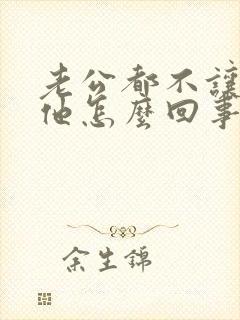 老公都不讓
他怎麼回事
余生錦